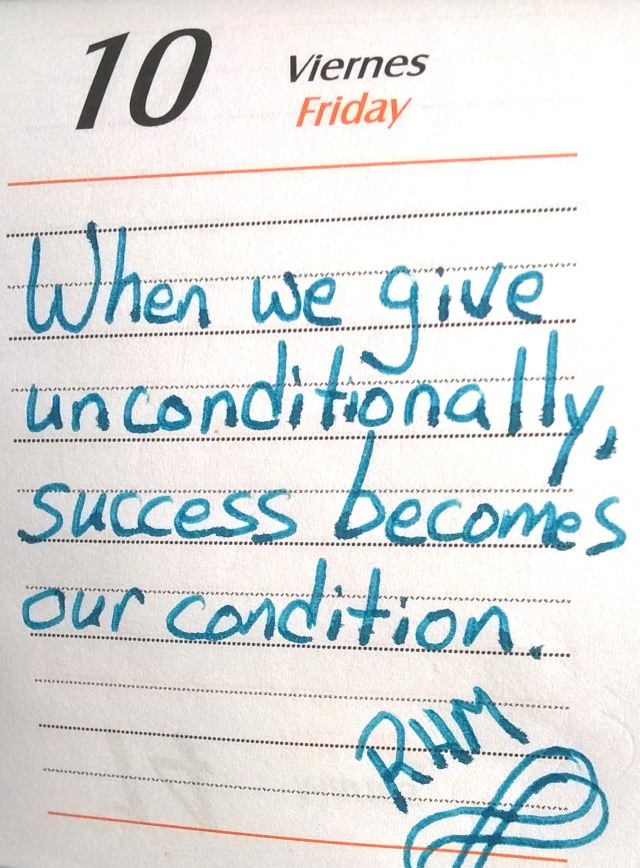 10 Viernes
Friday
When we give
unconditionally,
success becomes
our condition.
RHM